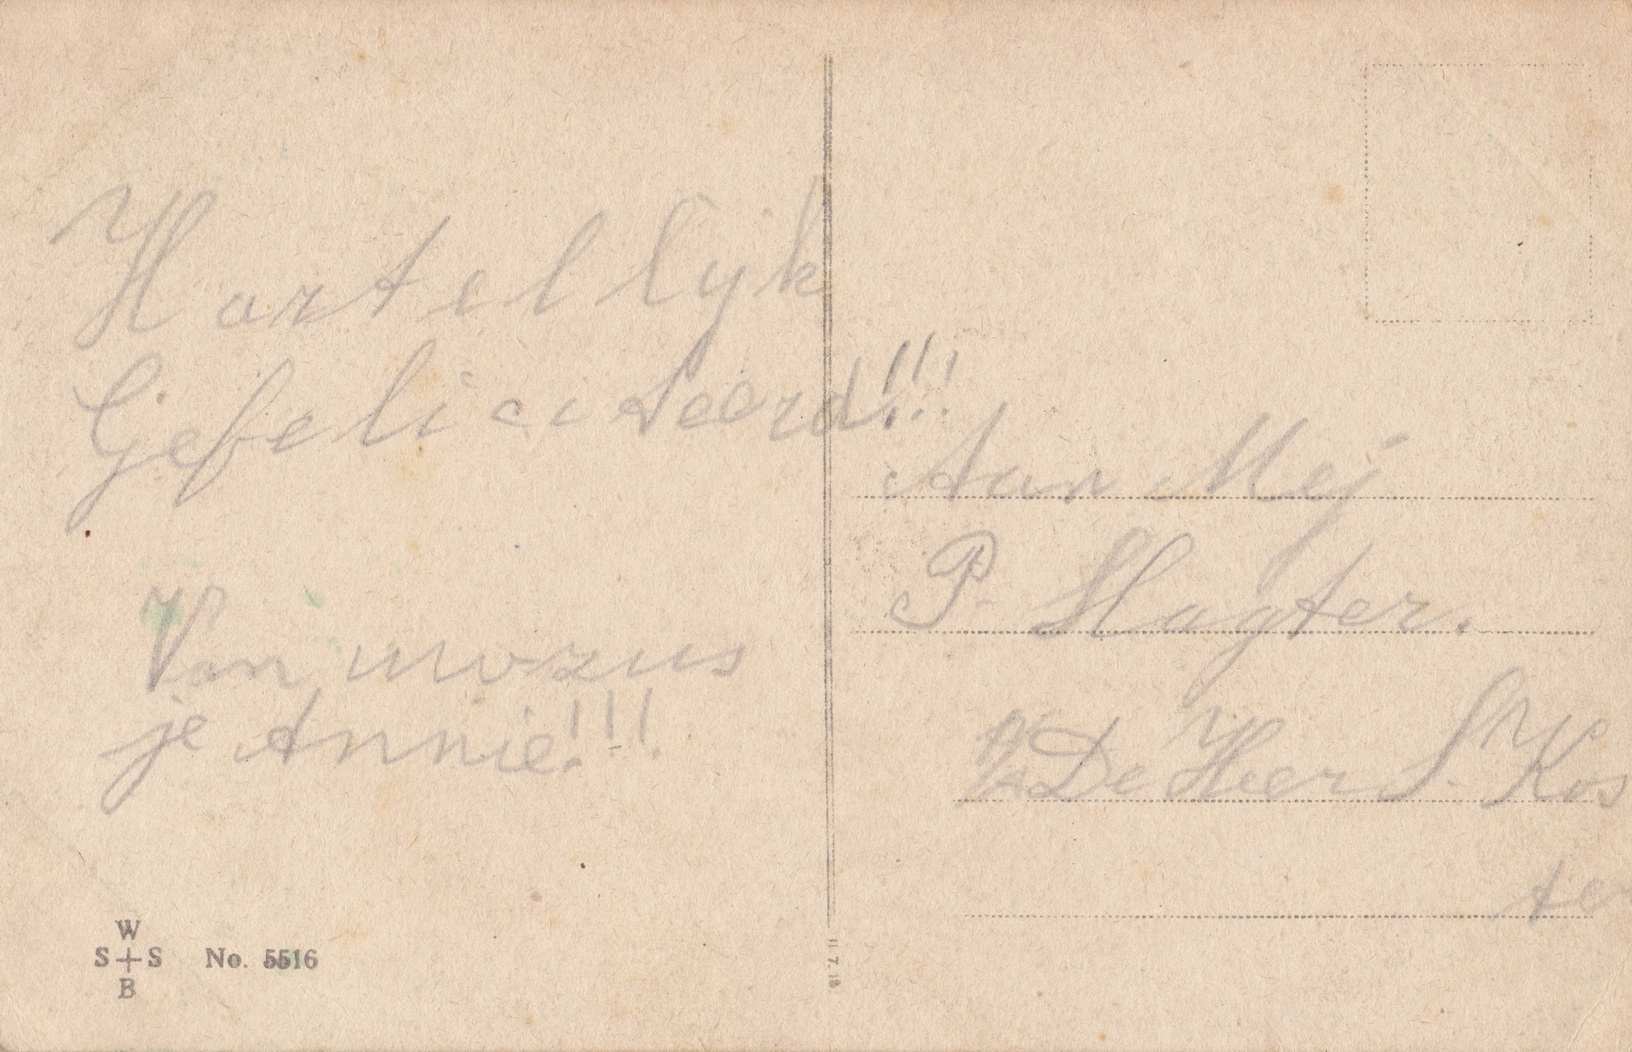 Hartellijk
Gefeliciteerd!!!
Van
je Annie!!!
Aan Mej
P. Slagter.
P/A De Heer S. Kos
ter
W
S S
B
No. 5516
11.7.18